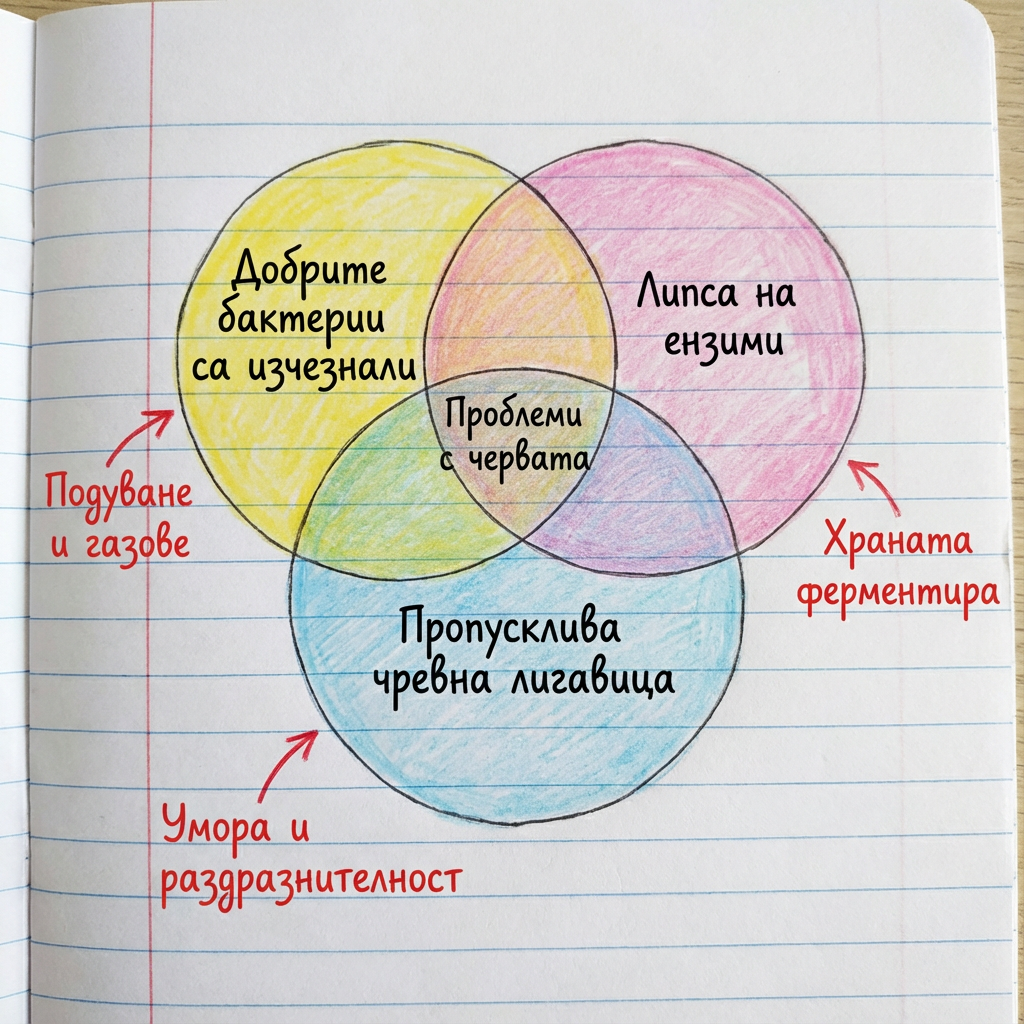 Добрите
бактерии
са изчезнали
Липса на
ензими
Проблеми
с червата
Подуване
и газове
Храната
ферментира
Пропусклива
чревна лигавица
Умора и
раздразнителност